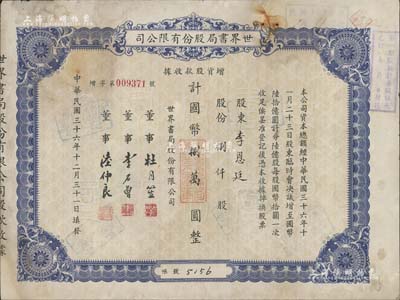 世界書局股份有限公司
增資股款收據
增字第009371號
本公司資本總額經中華民國三十六年十
一月二十三日股東臨時會決議增至國幣
陸拾億圓計分陸億股每股國幣拾圓一次
收足俟呈准登記後憑本收據掉換股票
股東 李恩廷
股份 捌仟股
計國幣捌萬圓整
世界書局股份有限公司
董事 杜月笙
董事 李石曾
董事 陸仲良
中華民國三十六年十二月三十一日填發
帳號 5156
世界書局股份有限公司股款收據